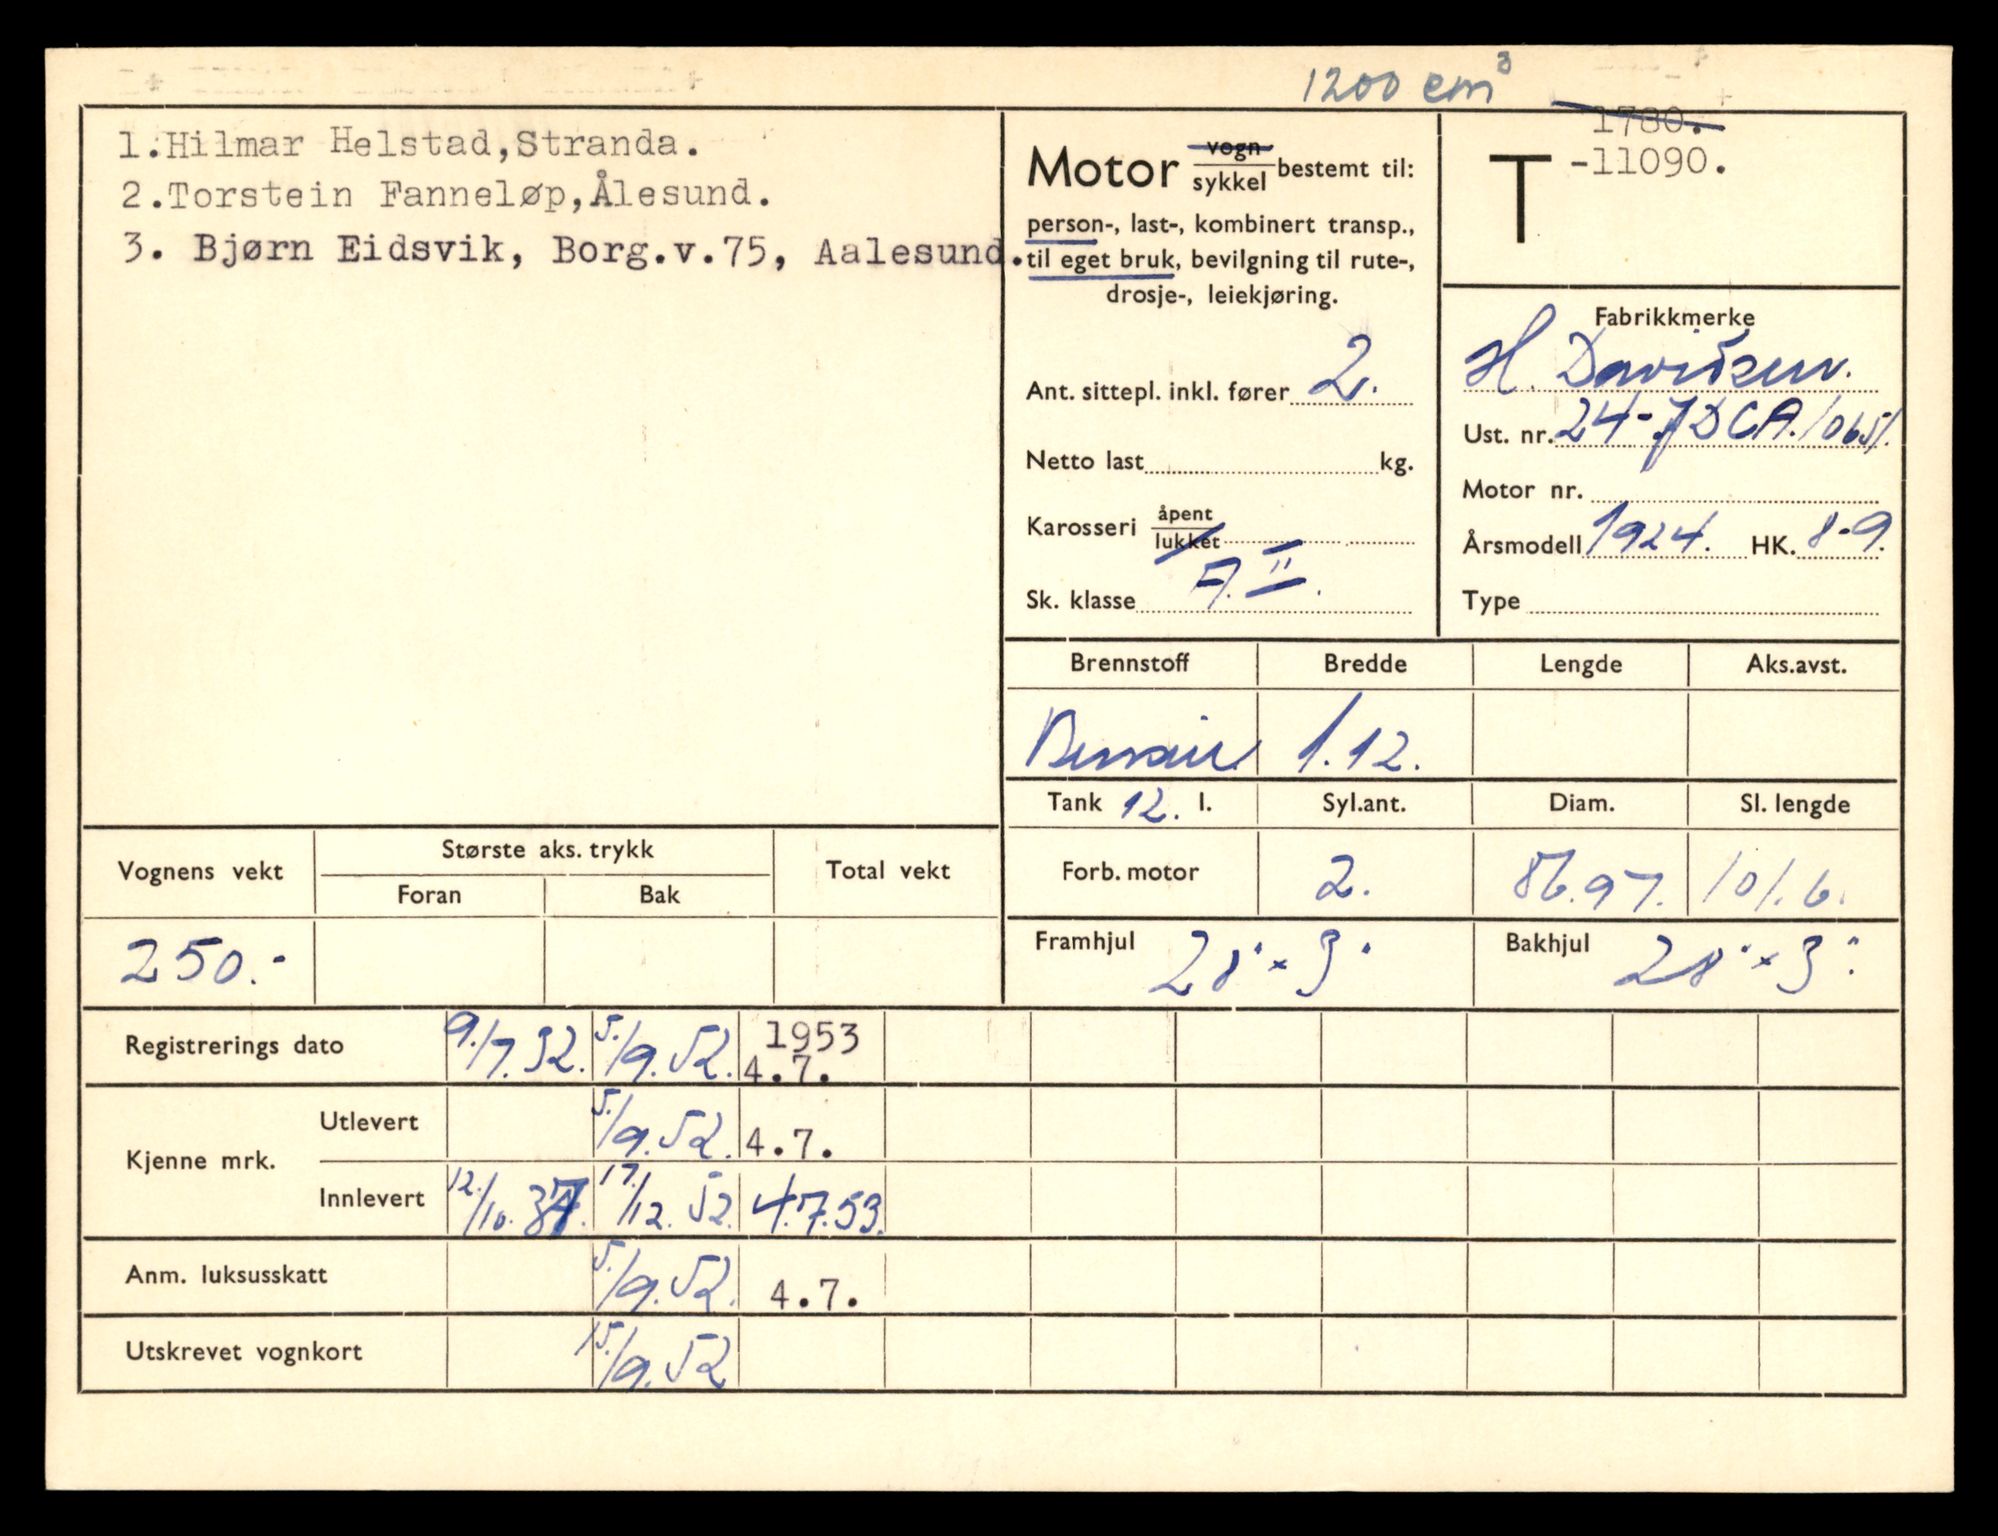 1200 cm³
1.Hilmar Helstad,Stranda.
2.Torstein Fanneløp,Ålesund.
3. Bjørn Eidsvik, Borg.v.75, Aalesund.
Motor vogn/sykkel bestemt til:
person-, last-, kombinert transp.,
til eget bruk, bevilgning til rute-,
drosje-, leiekjøring.
Ant. sittepl. inkl. fører 2.
Netto last kg.
Karosseri åpent/lukket
Sk. klasse A. II.
1780.
T -11090.
Fabrikkmerke
H. Davidsen.
Ust. nr. 24-JDCA.10651.
Motor nr.
Årsmodell 1924. HK. 8-9.
Type
Brennstoff Bredde Lengde Aks.avst.
Bensin 1.12.
Tank 12. l. Syl.ant. Diam. Sl. lengde
Forb. motor 2. 86.97. 101.6.
Framhjul 28" x 3" Bakhjul 28" x 3"
Vognens vekt Største aks. trykk Total vekt
Foran Bak
250.-
Registrerings dato 9./7.32. 5./9.52. 1953
4.7.
Kjenne mrk.
Utlevert 5./9.52. 4.7.
Innlevert 12./10.37. 17./12.52. 4.7.53.
Anm. luksusskatt 5./9.52. 4.7.
Utskrevet vognkort 15./9.52